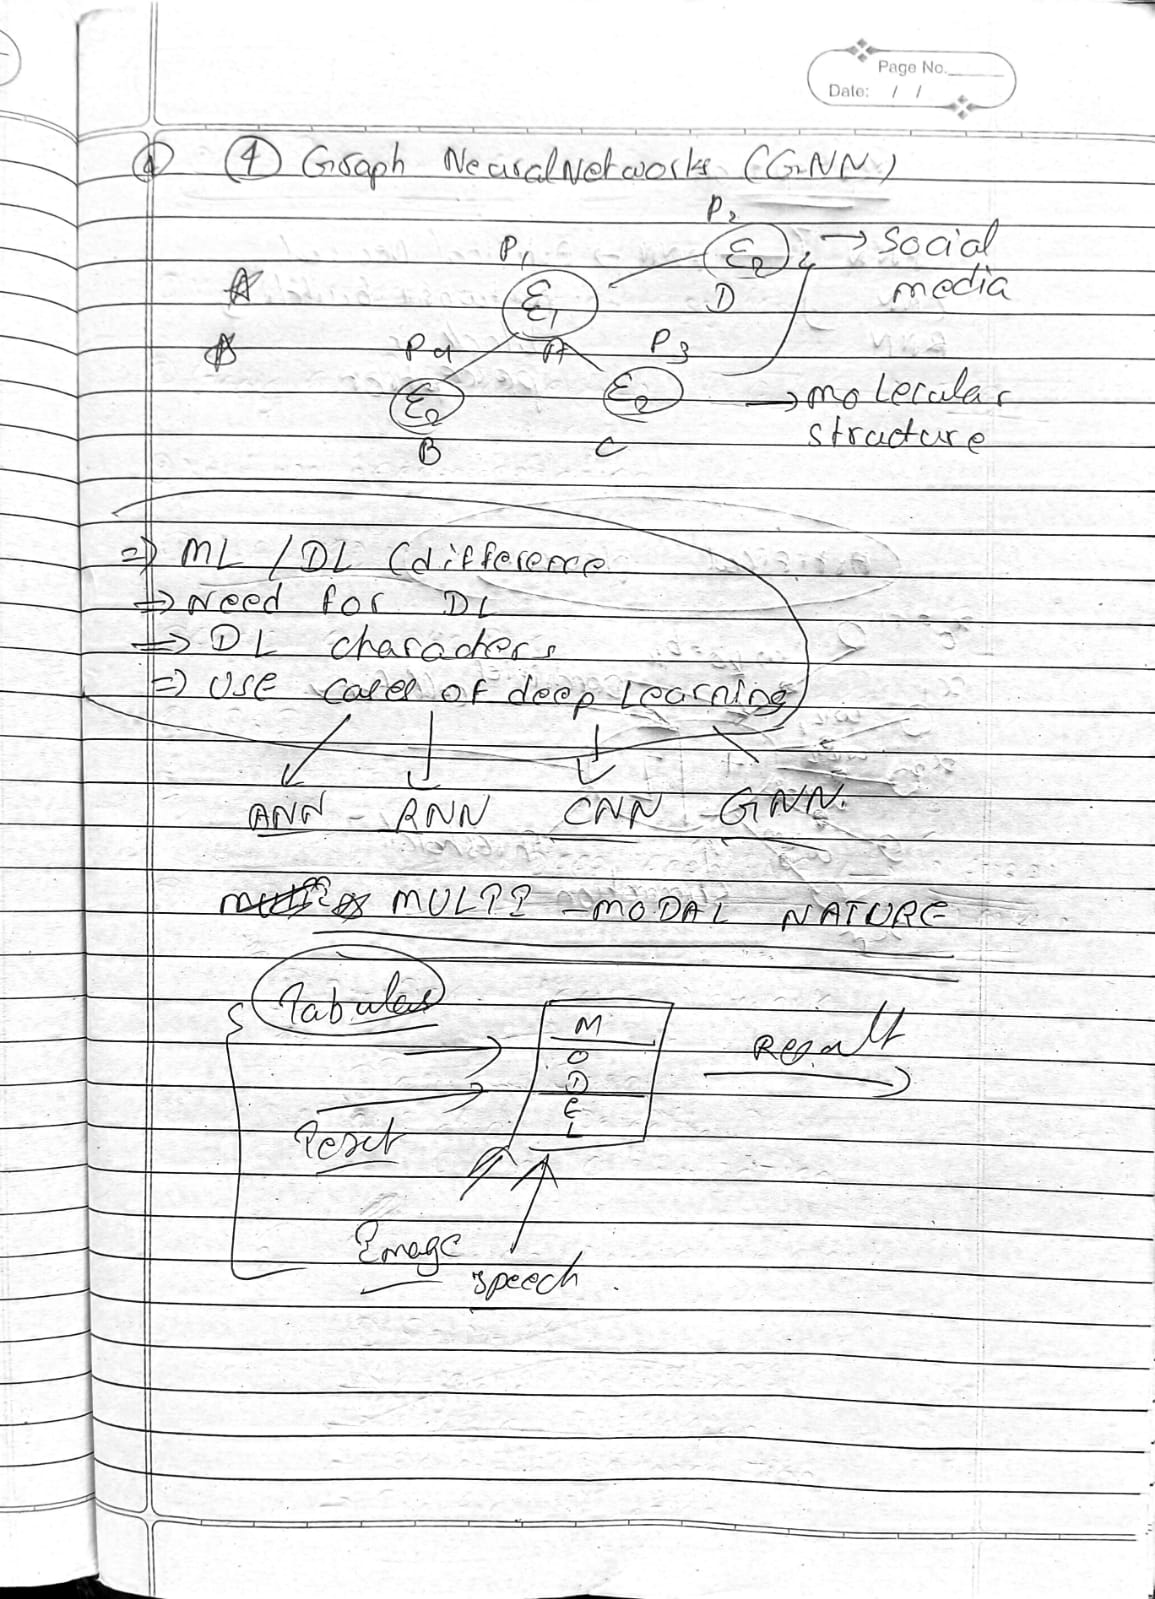 Page No.
Date: / /
④ Graph Neural Networks (GNN)
P2
E2 → Social
media
D
P1
E1
A
P4
P3
E2
E2
→ molecular
structure
B
C
⇒ ML / DL (difference
⇒ Need for DL
⇒ DL characters
⇒ Use cases of deep Learning
ANN - RNN CNN - GNN.
MULTI - MODAL NATURE
Tabular
M
O
D
E
L
Result
Text
Image
speech.